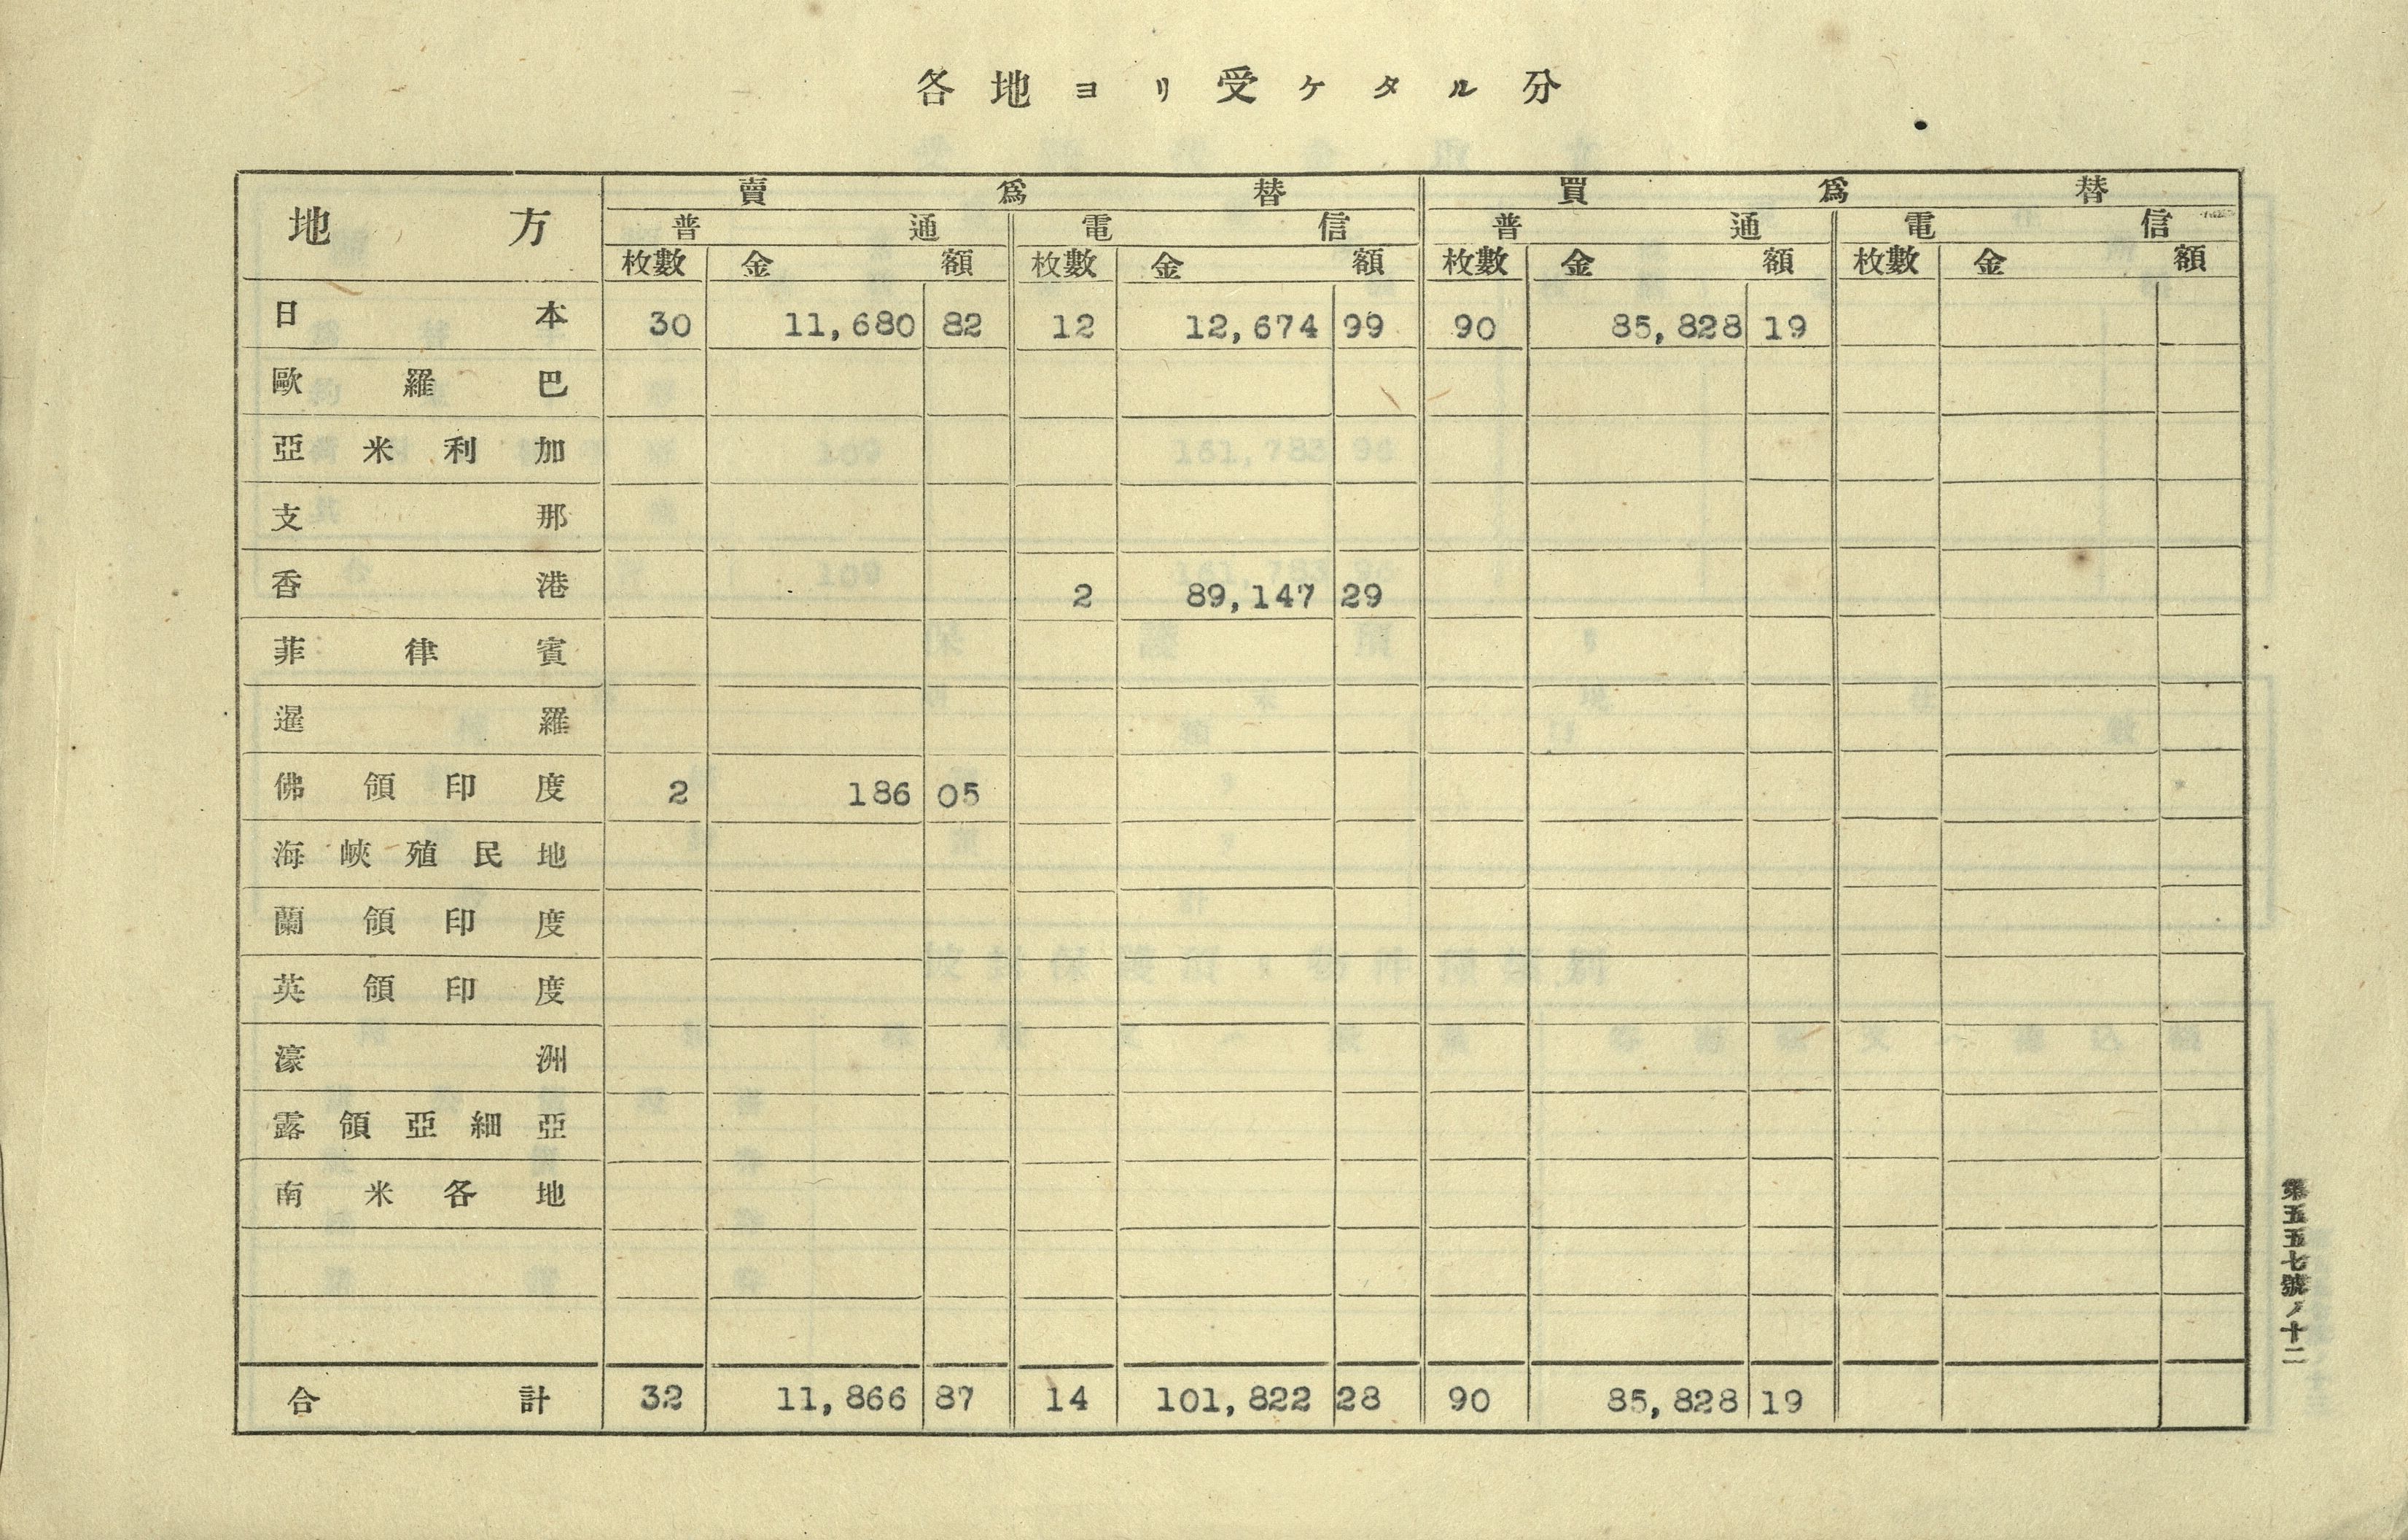 各地ヨリ受ケタル分
地方 賣爲替 買爲替
普通 電信 普通 電信
枚數 金額 枚數 金額 枚數 金額 枚數 金額
日本 30 11,680 82 12 12,674 99 90 85,828 19
歐羅巴
亞米利加
支那
香港 2 89,147 29
菲律賓
暹羅
佛領印度 2 186 05
海峽殖民地
蘭領印度
英領印度
濠洲
露領亞細亞
南米各地
合計 32 11,866 87 14 101,822 28 90 85,828 19
第五五七號ノ十二